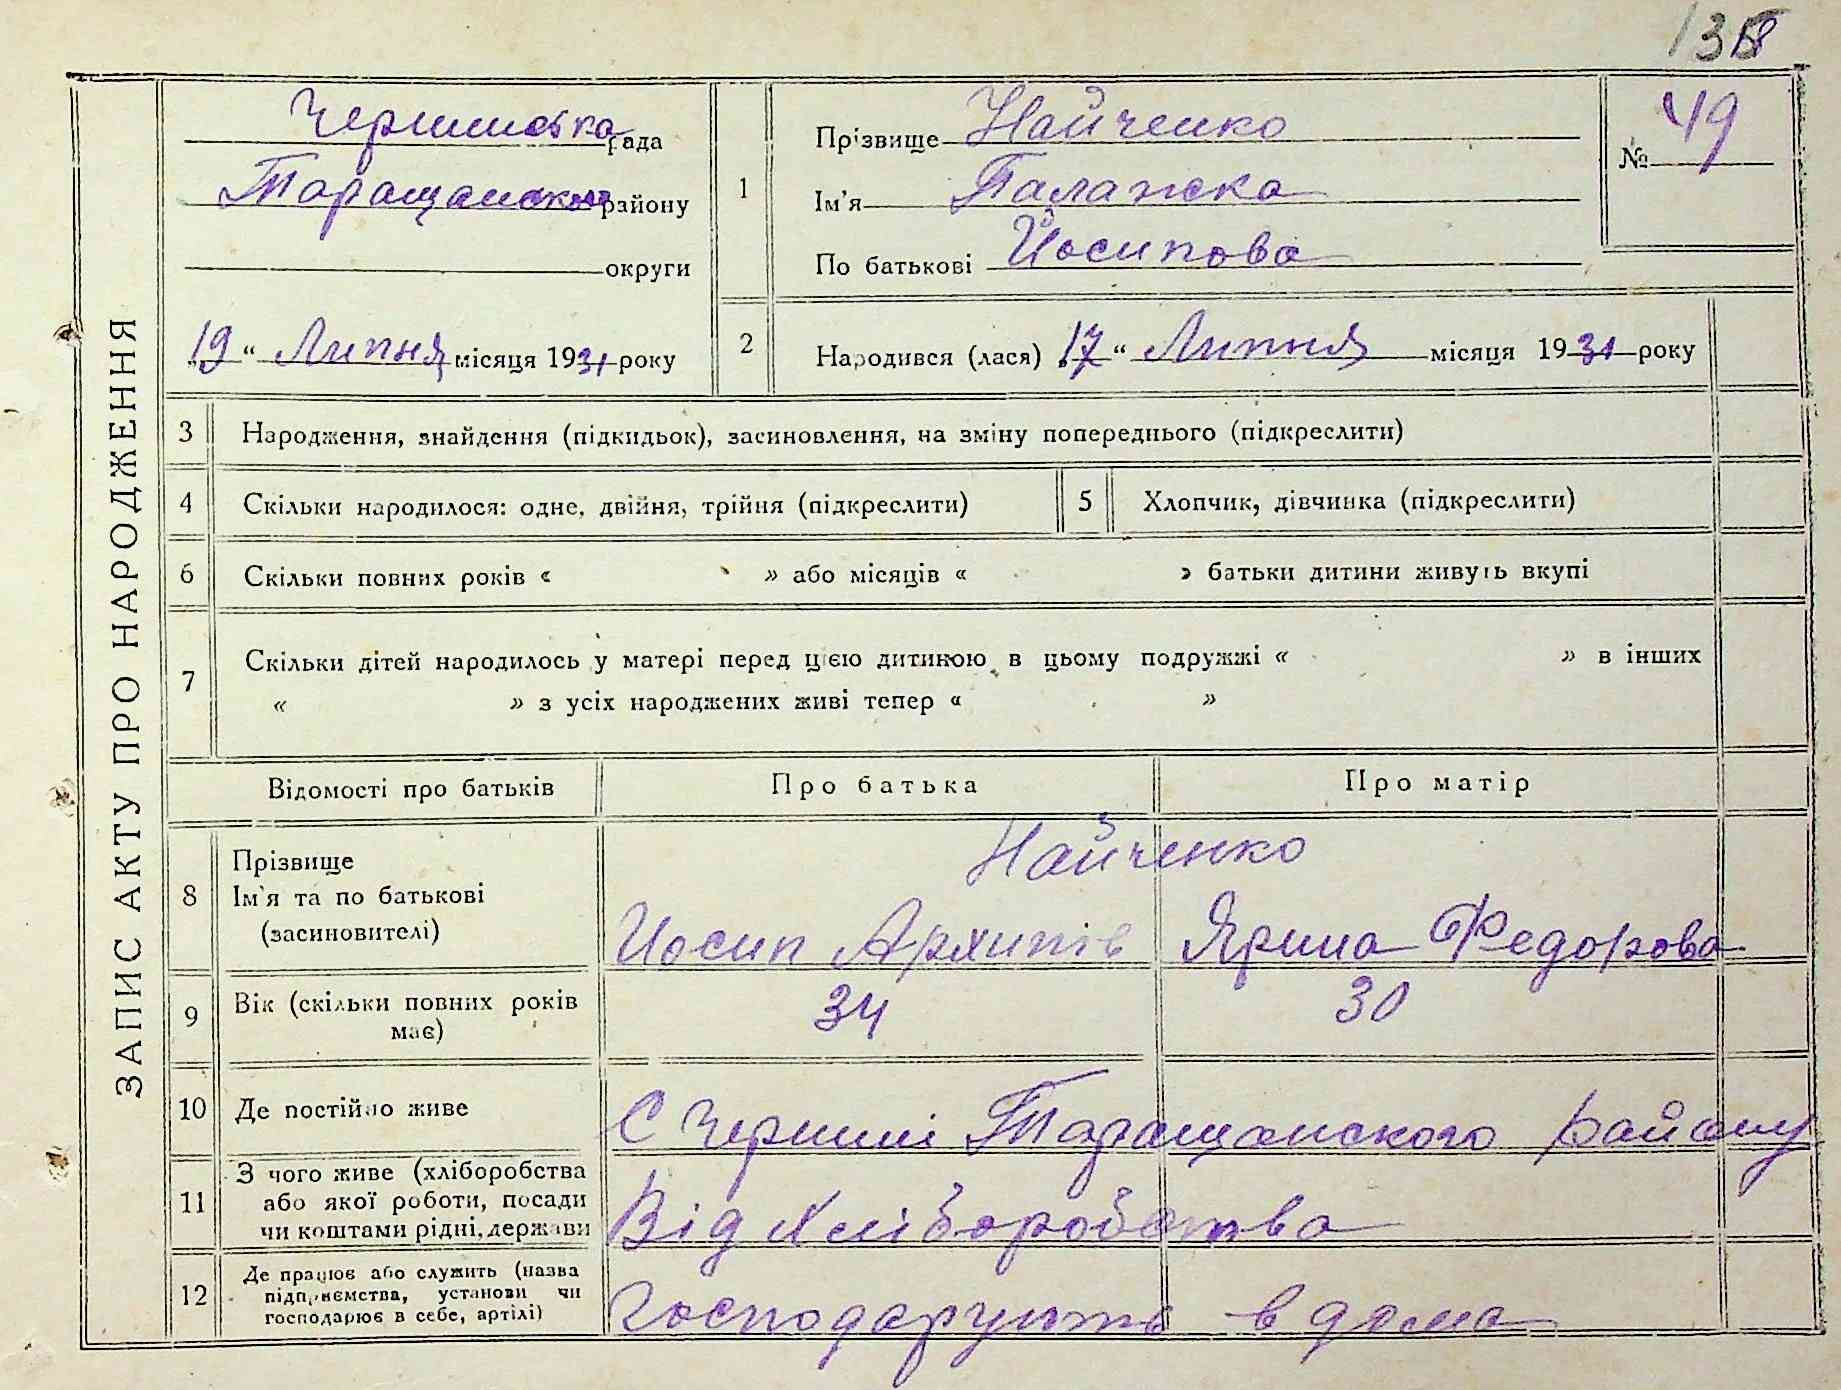 ЗАПИС АКТУ ПРО НАРОДЖЕННЯ
Черминська рада
Таращанського району
округи
„19“ Липня місяця 1931 року
1
Прізвище Найченко
Ім'я Палажка
По батькові Йосипова
№ 49
2
Народився (лася) „17“ Липня місяця 1931 року
3 Народження, знайдення (підкидьок), засиновлення, на зміну попереднього (підкреслити)
4 Скільки народилося: одне, двійня, трійня (підкреслити)
5 Хлопчик, дівчинка (підкреслити)
6 Скільки повних років « » або місяців « » батьки дитини живуть вкупі
7 Скільки дітей народилось у матері перед цією дитиною в цьому подружжі « » в інших
« » з усіх народжених живі тепер « »
Відомості про батьків Про батька Про матір
8 Прізвище
Ім'я та по батькові
(засиновителі)
Найченко
Иосип Архипів Ярина Федорова
9 Вік (скільки повних років
має)
34 30
10 Де постійно живе
С Чермині Таращанского району
11 З чого живе (хліборобства
або якої роботи, посади
чи коштами рідні, держави
Від Хліборобства
12 Де працює або служить (назва
підприємства, установи чи
господарює в себе, артілі)
Господарують в дома